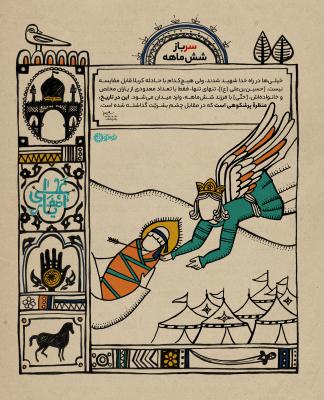 سرباز
شش‌ماهه
خیلی‌ها در راه خدا شهید شدند، ولی هیچ‌کدام با حادثه کربلا قابل مقایسه
نیست. (حسین‌بن‌علی (ع))، تنهای تنها، فقط با تعداد معدودی از یاران مخلص
و خانواده‌اش، (حتّی) با فرزند شش‌ماهه، وارد میدان می‌شود. این در تاریخ،
منظرهٔ پرشکوهی است که در مقابل چشم بشریّت گذاشته شده است.